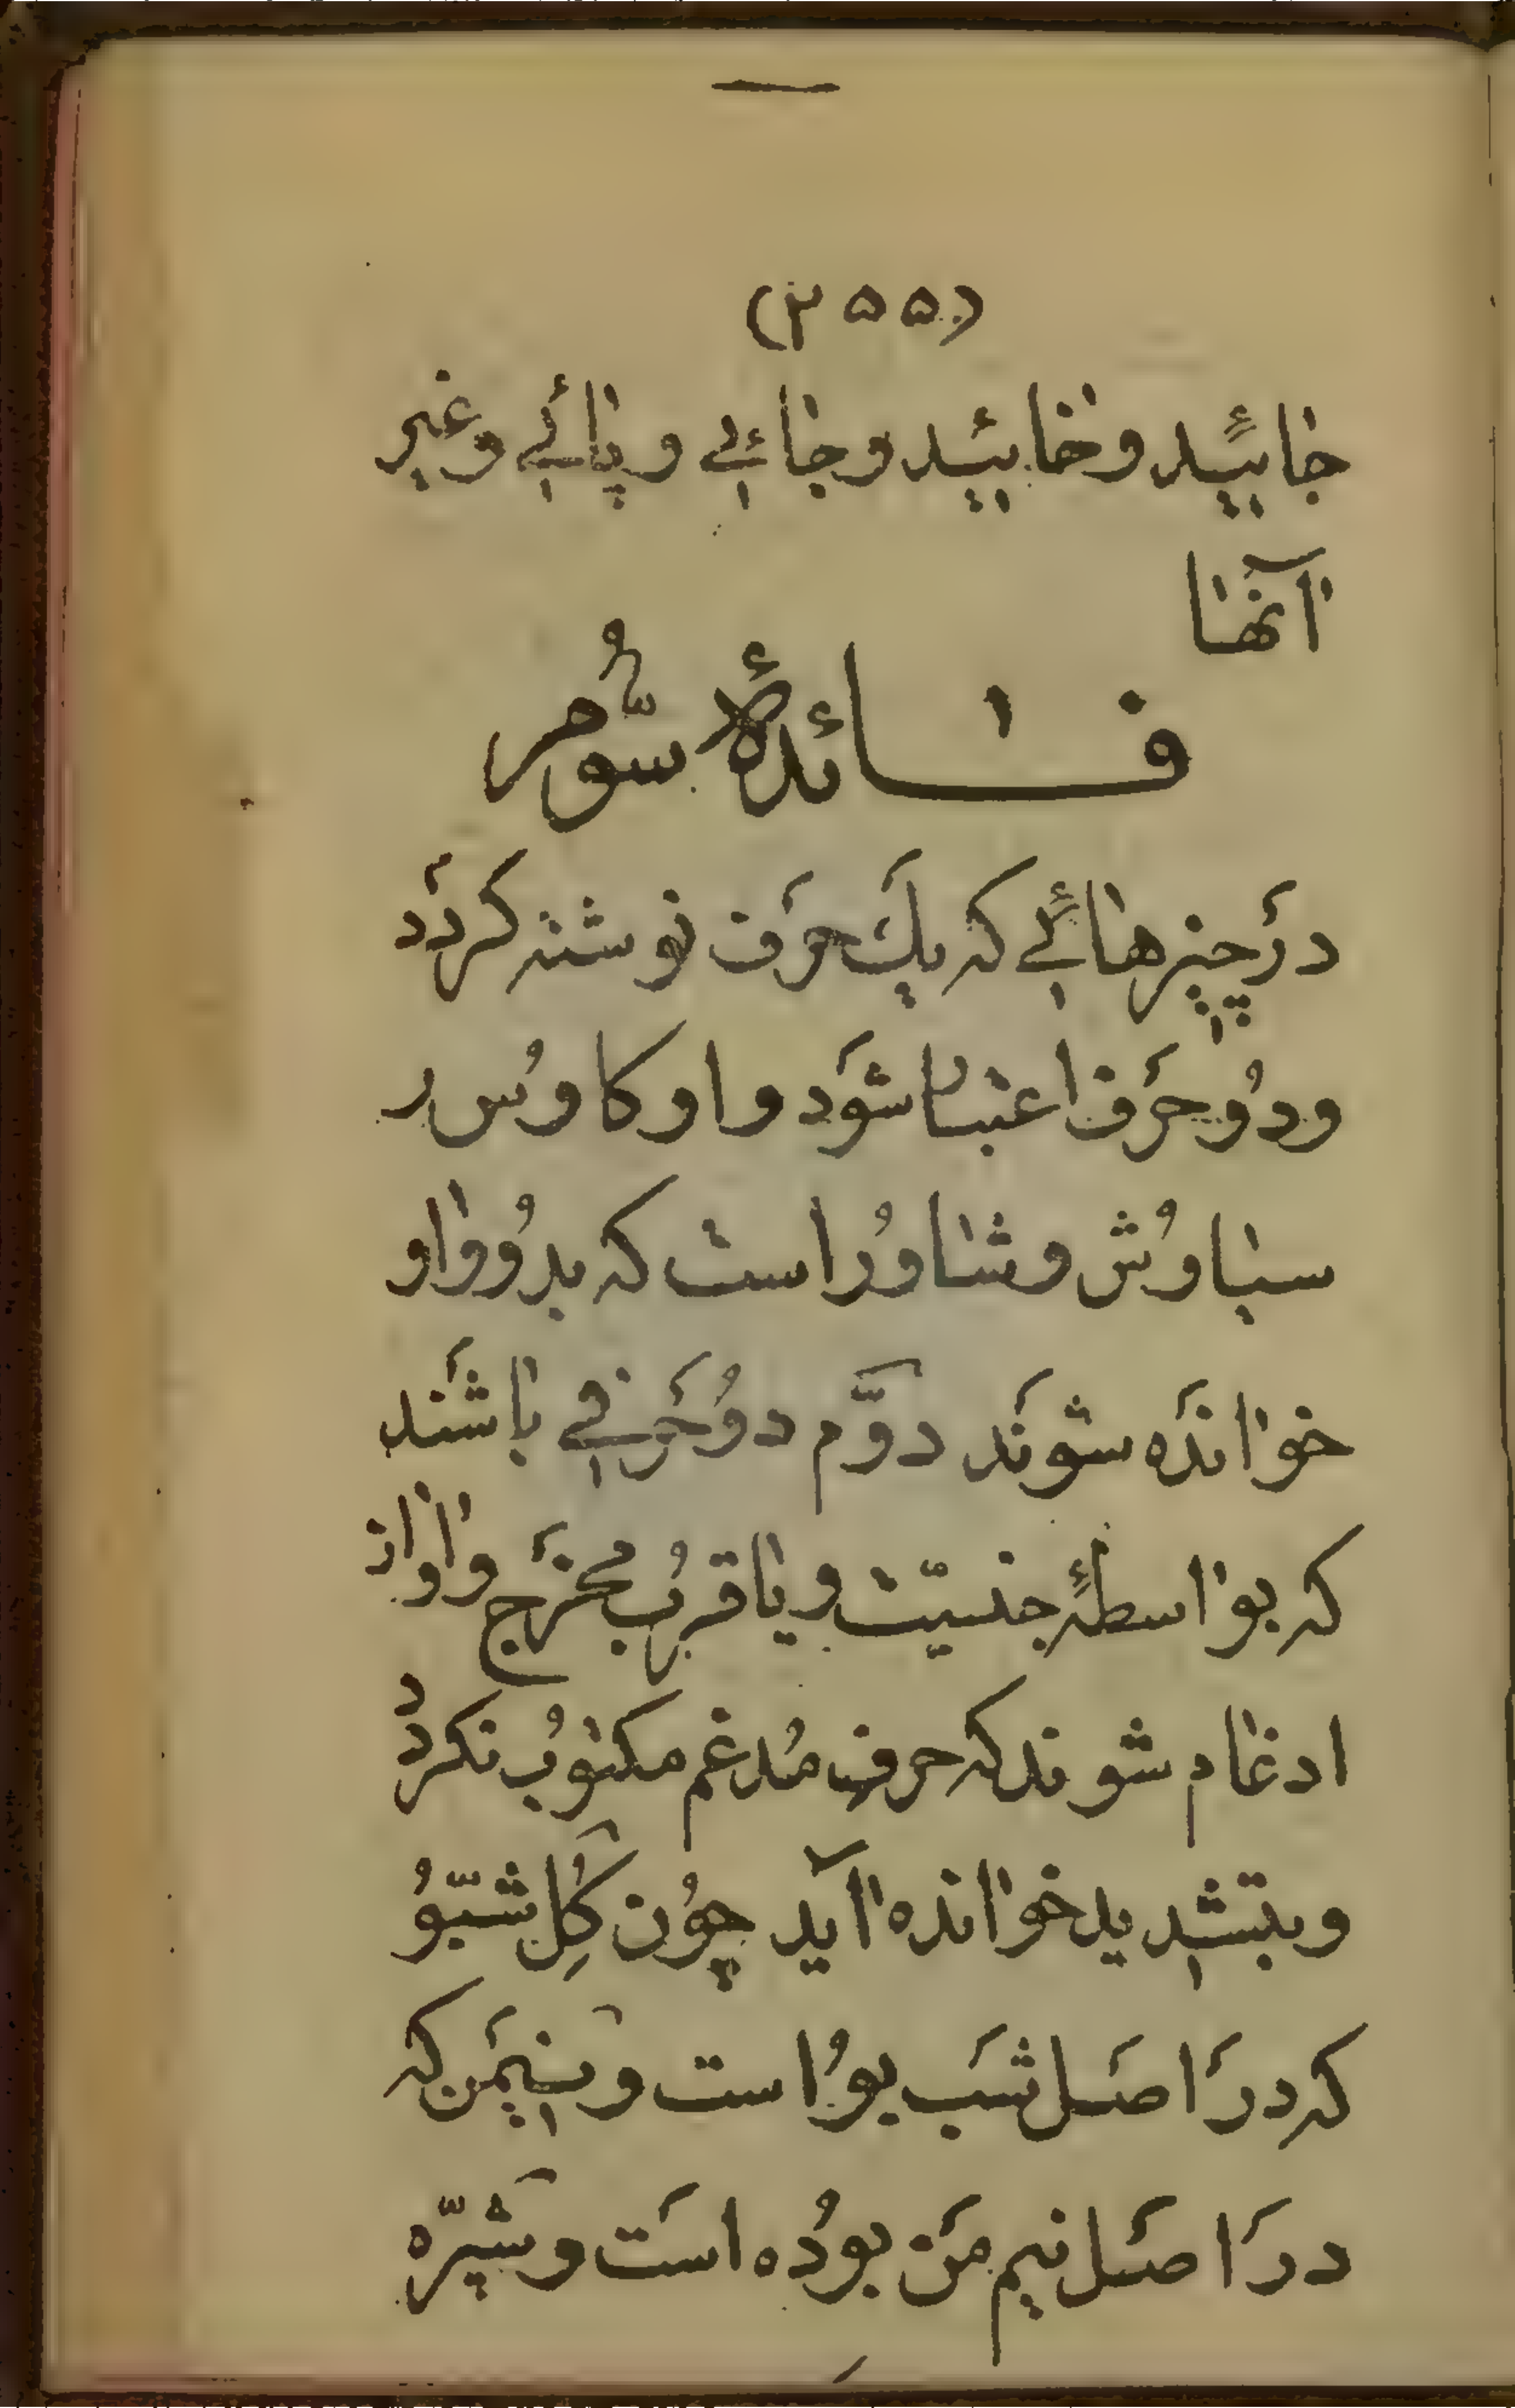 (۲۵۵)
خابئید و خابئید و جائی و پائی و غیر
آنها
فائدۀ سوُّم
دَر چیزهائی که یک حَرف نوشته کردَد
و دُو حَرف اعتبار شوَد واو کاوُس و
سیاوُش و شاوُر است که بدُو واو
خوانَده شوَند دوَّم دوُحَرفی باشَند
که بواسطۀ جنسیّت و یا قربُ مخرَج و اواز
ادغام شوند که حرف مُدغم مکتوُب نکردد
و بتشدید خوانده آید چوُن کُلِ شَبّوُ
که دَر اصَل شَب بوُ است و نیمَّن که
دَر اصَل نیم مَن بوُده است و شَپّره